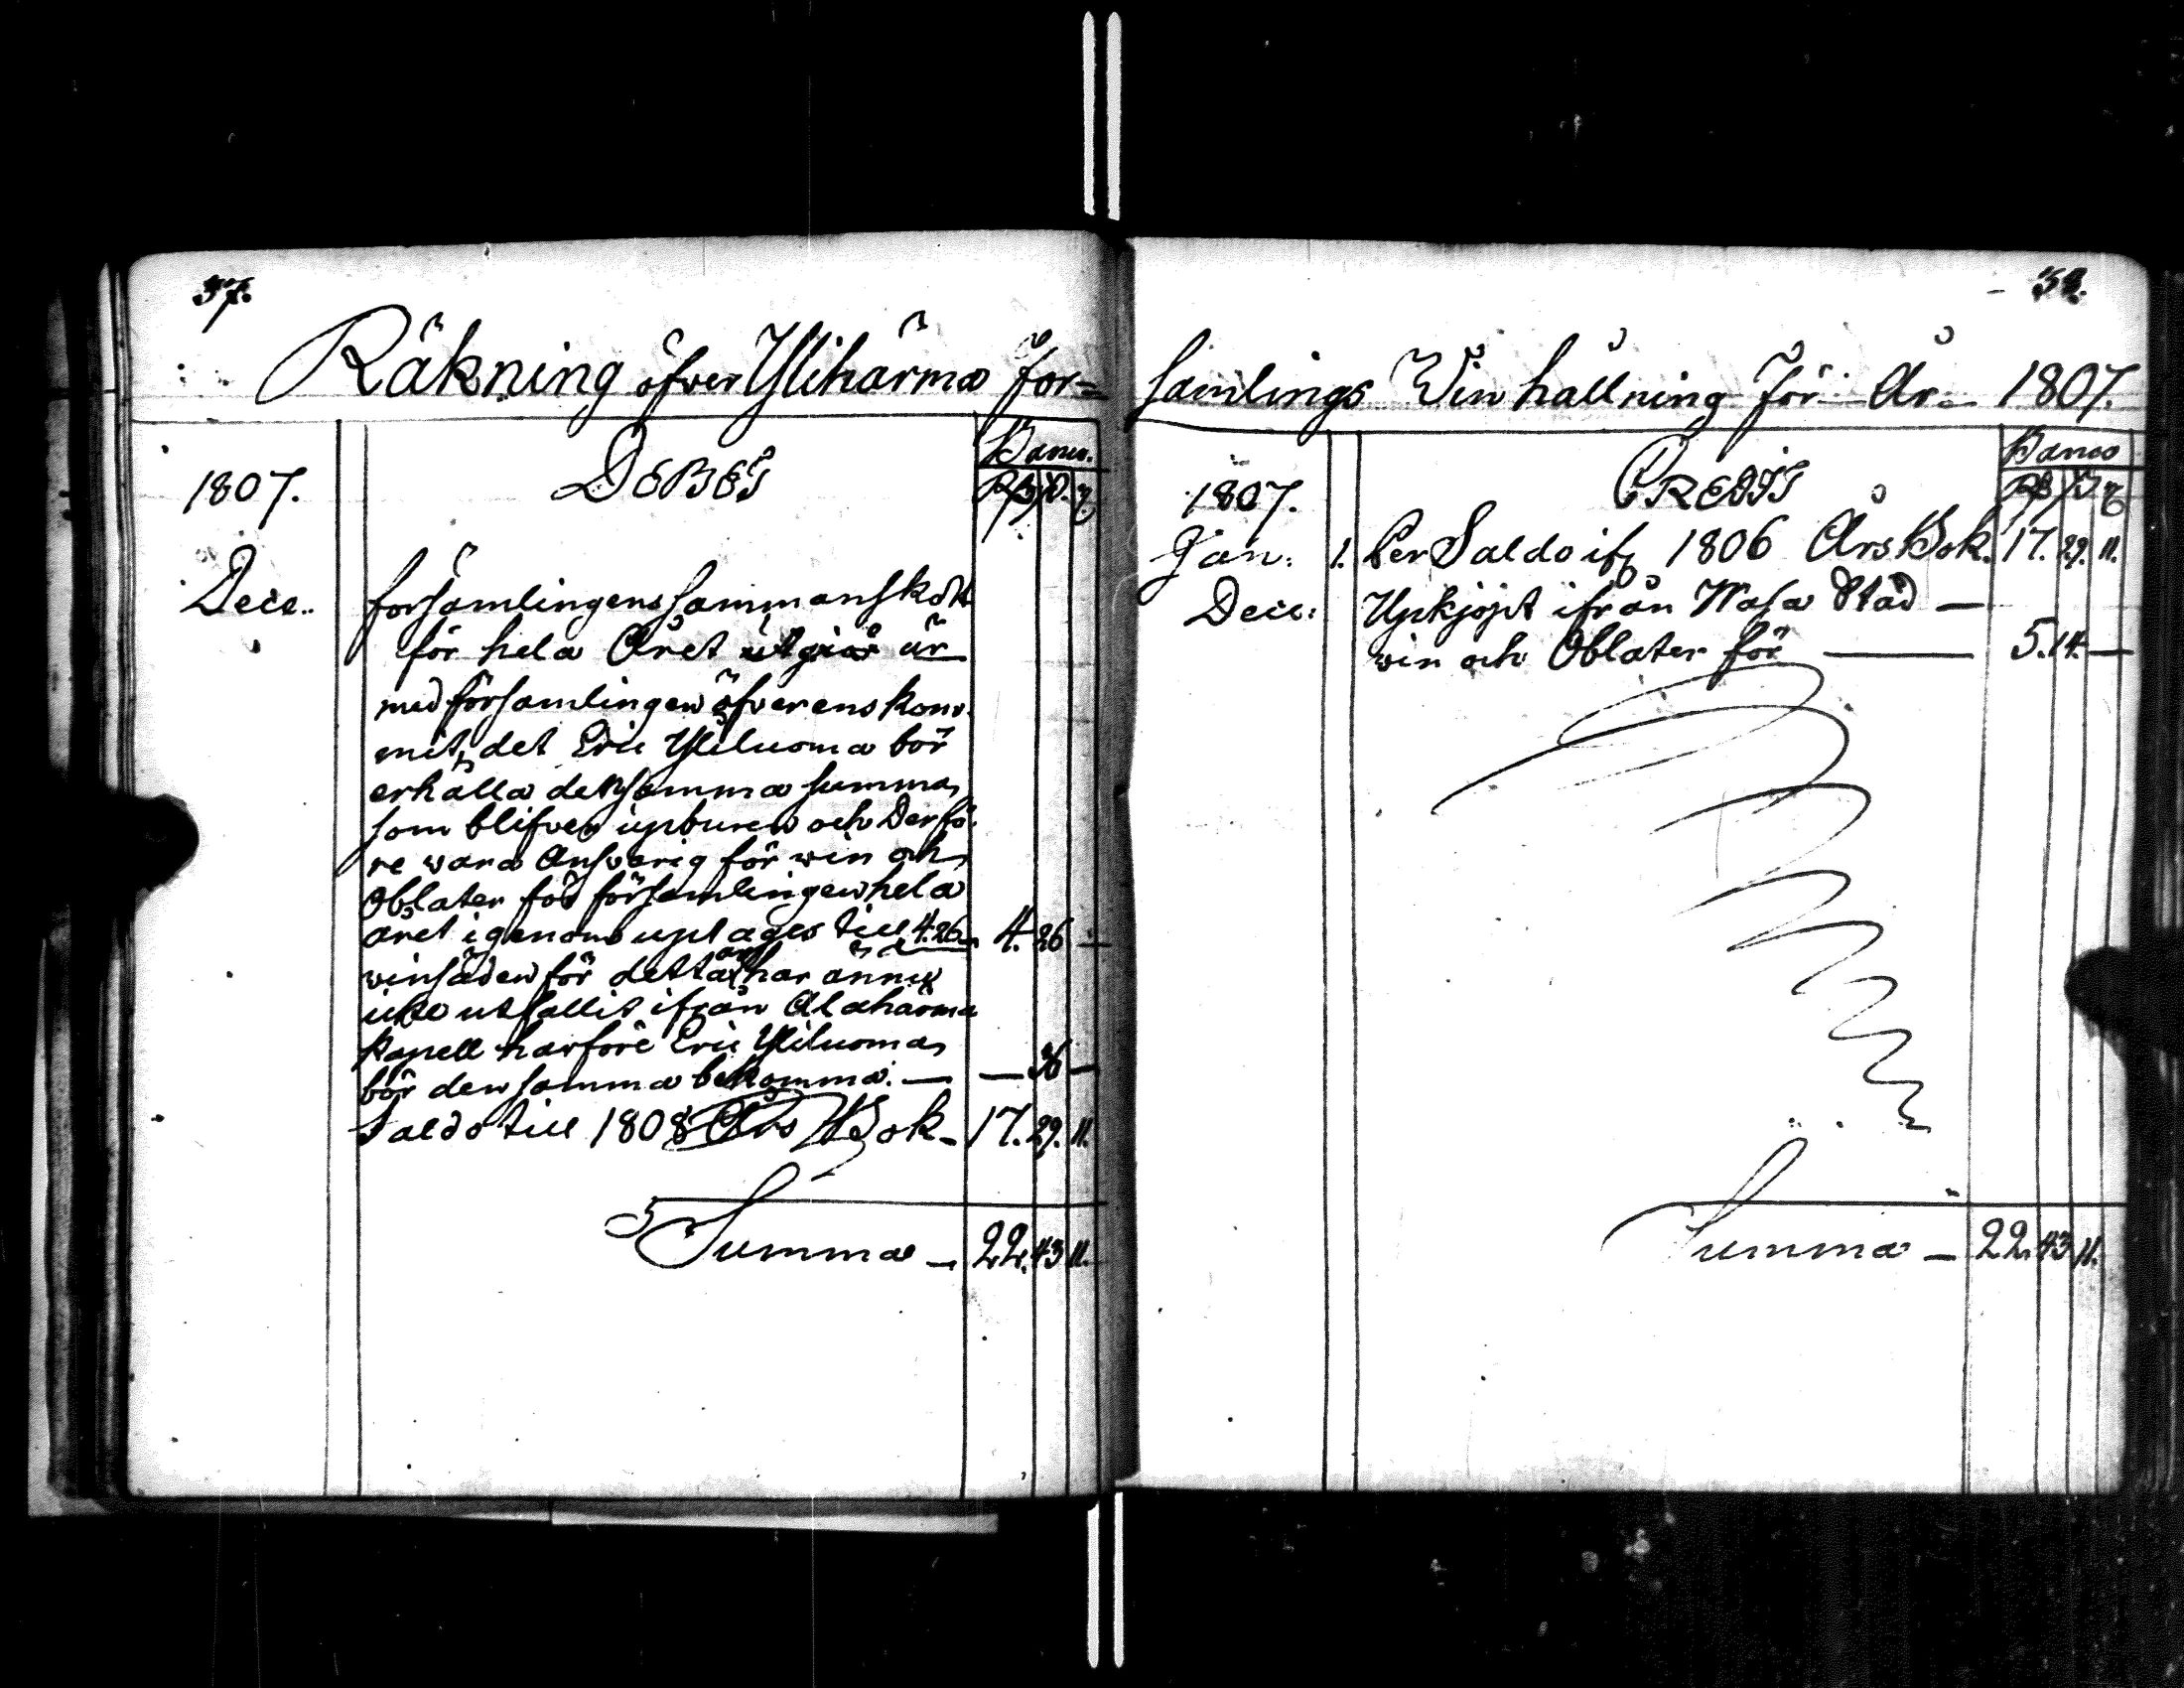 37.
Räkning öfver Ylihärmä För=
Banco.
1807. DEBET
Rd ß. rs
Dece.. församlingens sammanskott
för hela Året utgiör är
med församlingen öfverenskom-
mit, det Eric Yliluoma bör
erhålla densamma summa,
som blifven upburen och Derfö-
re vara Ansvarig för win och
Oblater för församlingen hela
året igenom uptages till 4.26 4. 26 —
winsäden för detta år har ännu
icke utfallit ifrån Alahärmä
Kapell harföre Eric Yliluoma
bör den samma bekomma. — — 36 —
Saldo till 1808 Års Bok — 17. 29. 11.
Summa — 22. 43 11.
38.
samlings Win hållning För År 1807.
Banco
1807. CREDIT
Rd ß rs
Jan: 1. Per Saldo ifr 1806 Års Bok. 17. 29. 11.
Dece: Upkjöpt ifrån Wasa Stad —
win och Oblater för — 5. 14. —
Summa — 22. 43 11.